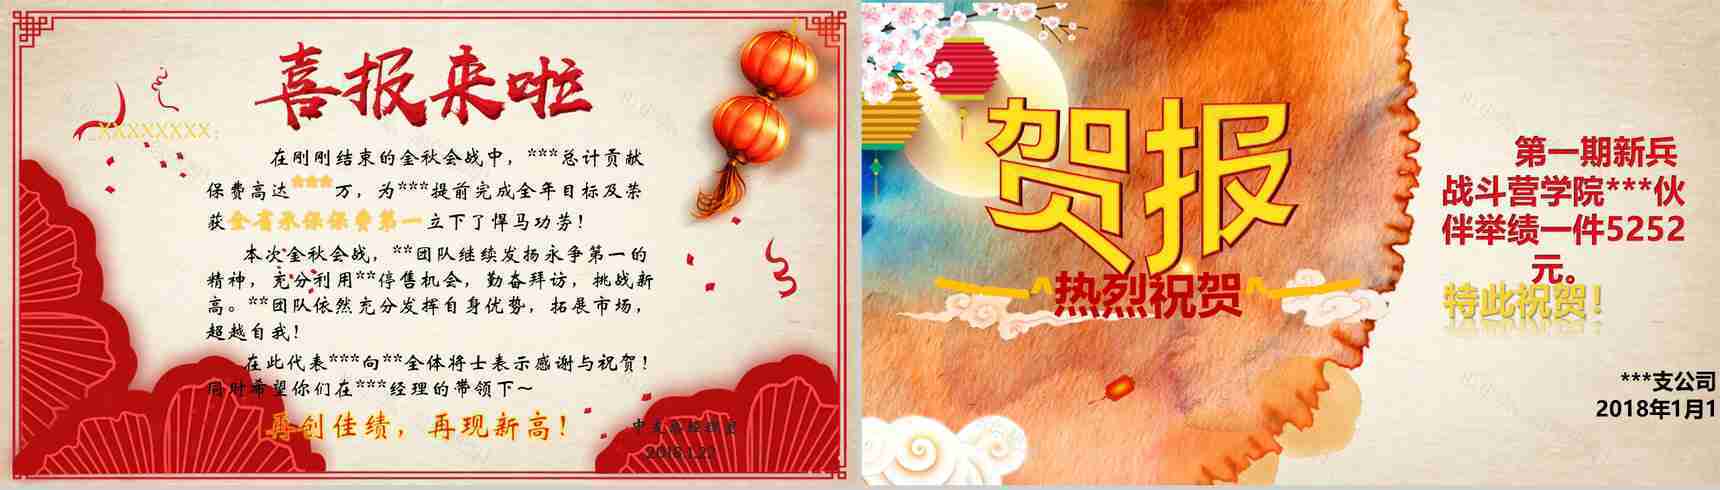 喜报来啦
XXXXXXXX：
在刚刚结束的金秋会战中，***总计贡献
保费高达***万，为***提前完成全年目标及荣
获全省承保保费第一立下了悍马功劳！
本次金秋会战，**团队继续发扬永争第一的
精神，充分利用**停售机会，勤奋拜访，挑战新
高。**团队依然充分发挥自身优势，拓展市场，
超越自我！
在此代表***向**全体将士表示感谢与祝贺！
同时希望你们在***经理的带领下~
再创佳绩，再现新高！
贺报
热烈祝贺
第一期新兵
战斗营学院***伙
伴举绩一件5252
元。
特此祝贺！
***支公司
2018年1月1